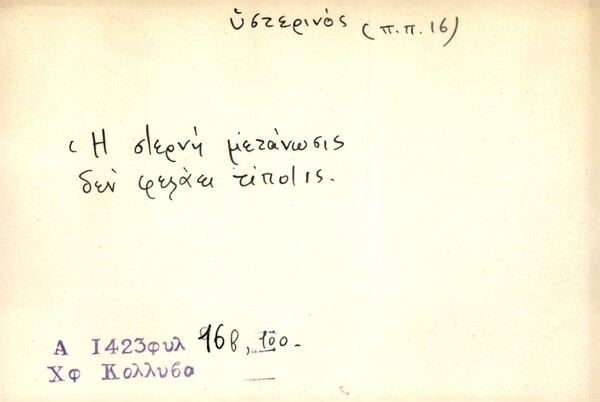 ὑστερινός (π.π. 16)
Ἡ στερνή μετάνωσις
δέν φελάει τίποτις.
Α 1423φυλ 16β,
Χφ Κολλυβα